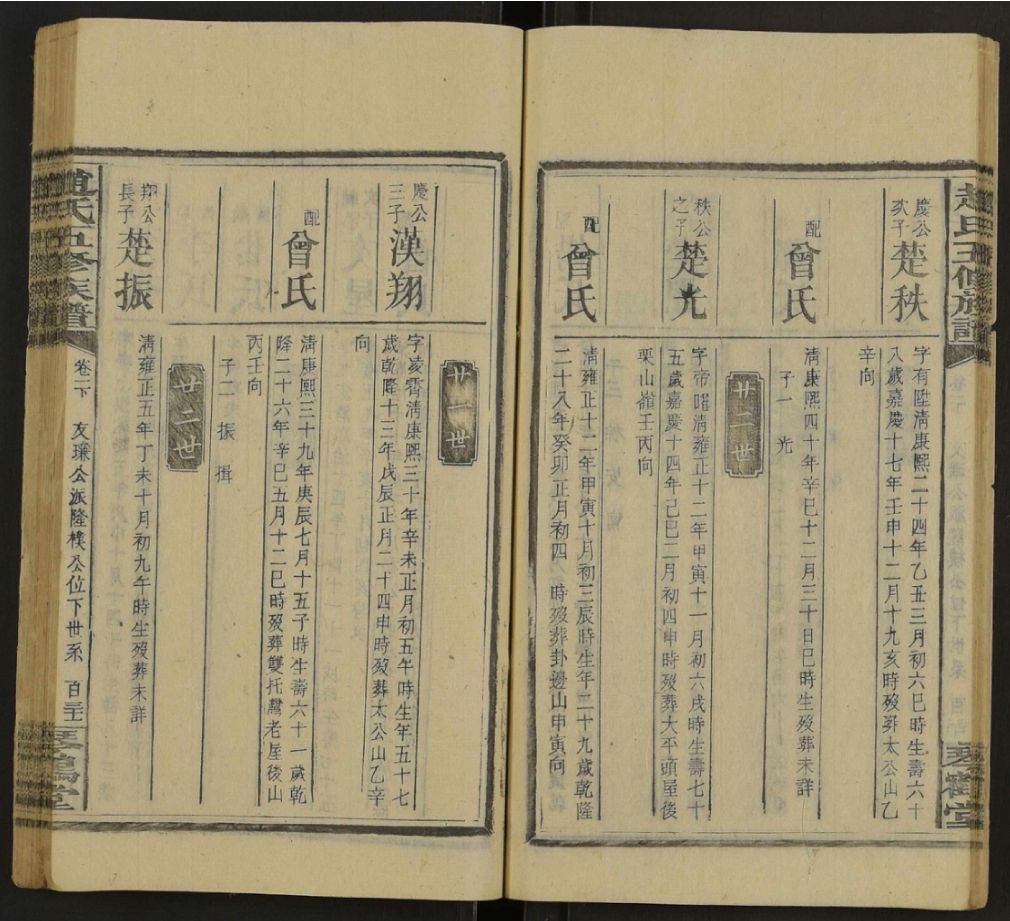 趙氏五修族譜
慶公
次子
楚秩
字有陞淸康熙二十四年乙丑三月初六巳時生壽六十
八歲嘉慶十七年壬申十二月十九亥時歿葬太公山乙
辛向
配
曾氏
淸康熙四十年辛巳十二月三十日巳時生歿葬未詳
子一 光
廿二世
秩公
之子
楚光
字帝㬢淸雍正十二年甲寅十一月初六戌時生壽七十
五歲嘉慶十四年己巳二月初四申時歿葬大平頭屋後
栗山嶺壬丙向
配
曾氏
淸雍正十二年甲寅十月初三辰時生年二十九歲乾隆
二十八年癸卯正月初四 時歿葬卦邊山申寅向
琴鶴堂
廿一世
慶公
三子
漢翔
字凌霄淸康熙三十年辛未正月初五午時生年五十七
歲乾隆十三年戊辰正月二十四申時歿葬太公山乙辛
向
配
曾氏
淸康熙三十九年庚辰七月十五子時生壽六十一歲乾
隆二十六年辛巳五月十二巳時歿葬雙托灣老屋後山
丙壬向
子二 振 揖
廿二世
翔公
長子
楚振
淸雍正五年丁未十月初九午時生歿葬未詳
趙氏五修族譜
卷二下 友璩公派隆樸公位下世系
琴鶴堂